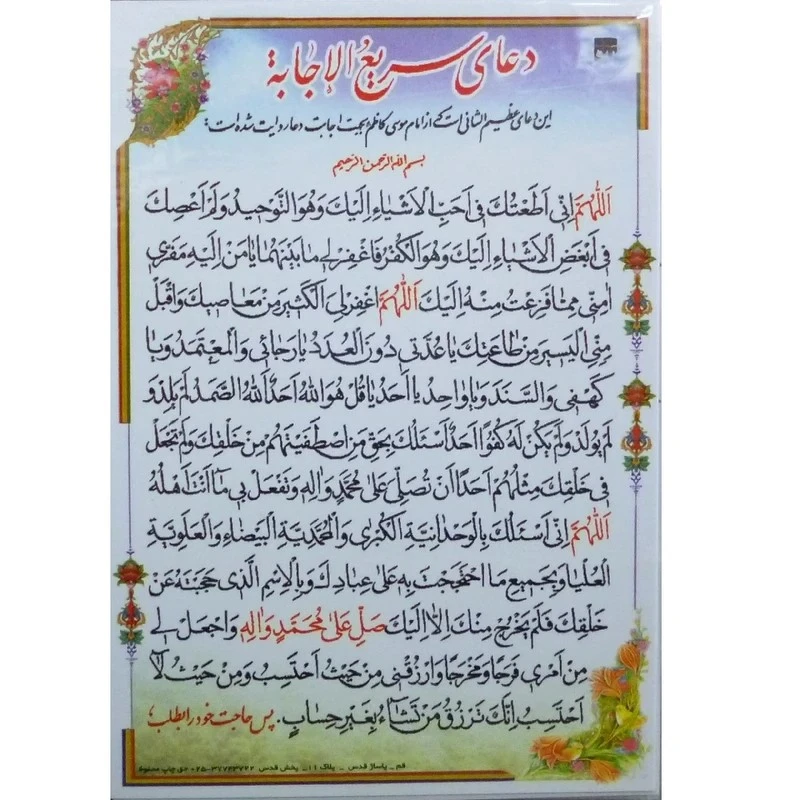 دعای سریع الإجابة
این دعای عظیم الشانی است که از امام موسی کاظم بجهت اجابت دعا روایت شده است:
بسم الله الرحمن الرحیم
اَللّٰهُمَّ اِنّی اَطَعْتُكَ فی اَحَبِّ الْاَشْیٰاءِ اِلَیْكَ وَهُوَ التَّوْحیدُ وَلَمْ اَعْصِكَ
فی اَبْغَضِ الْاَشْیٰاءِ اِلَیْكَ وَهُوَ الْكُفْرُ فَاغْفِرْ لی مٰا بَیْنَهُمٰا یٰا مَنْ اِلَیْهِ مَفَرّی
اٰمِنّی مِمّٰا فَزِعْتُ مِنْهُ اِلَیْكَ اَللّٰهُمَّ اغْفِرْ لِیَ الْكَثیرَ مِنْ مَعٰاصیكَ وَاقْبَلْ
مِنِّی الْیَسیرَ مِنْ طٰاعَتِكَ یٰا عُدَّتی دُونَ الْعُدَدِ یٰا رَجٰائی وَالْمُعْتَمَدُ وَیٰا
كَهْفی وَالسَّنَدَ وَیٰا وٰاحِدُ یٰا اَحَدُ یٰا قُلْ هُوَ اللهُ اَحَدٌ اَللهُ الصَّمَدُ لَمْ یَلِدْ وَ
لَمْ یُولَدْ وَلَمْ یَكُنْ لَهُ كُفُوًا اَحَدٌ اَسْئَلُكَ بِحَقِّ مَنِ اصْطَفَیْتَهُمْ مِنْ خَلْقِكَ وَلَمْ تَجْعَلْ
فی خَلْقِكَ مِثْلَهُمْ اَحَدًا اَنْ تُصَلِّیَ عَلیٰ مُحَمَّدٍ وَاٰلِهِ وَتَفْعَلَ بی مٰا اَنْتَ اَهْلُهُ
اَللّٰهُمَّ اِنّی اَسْئَلُكَ بِالْوَحْدٰانِیَّةِ الْكُبْریٰ وَالْمُحَمَّدِیَّةِ الْبَیْضٰاءِ وَالْعَلَوِیَّةِ
الْعُلْیٰا وَبِجَمیعِ مَا احْتَجَجْتَ بِهِ عَلیٰ عِبٰادِكَ وَبِالْاِسْمِ الَّذی حَجَبْتَهُ عَنْ
خَلْقِكَ فَلَمْ یَخْرُجْ مِنْكَ اِلّٰا اِلَیْكَ صَلِّ عَلیٰ مُحَمَّدٍ وَاٰلِهِ وَاجْعَلْ لی
مِنْ اَمْری فَرَجًا وَمَخْرَجًا وَارْزُقْنی مِنْ حَیْثُ اَحْتَسِبُ وَمِنْ حَیْثُ لٰا
اَحْتَسِبُ اِنَّكَ تَرْزُقُ مَنْ تَشٰاءُ بِغَیْرِ حِسٰابٍ. پس حاجت خود را بطلب؛
قم _ پاساژ قدس _ پلاک ۱۱_ پخش قدس ۳۷۷۴۳۷۲۲-۰۲۵ حق چاپ محفوظ